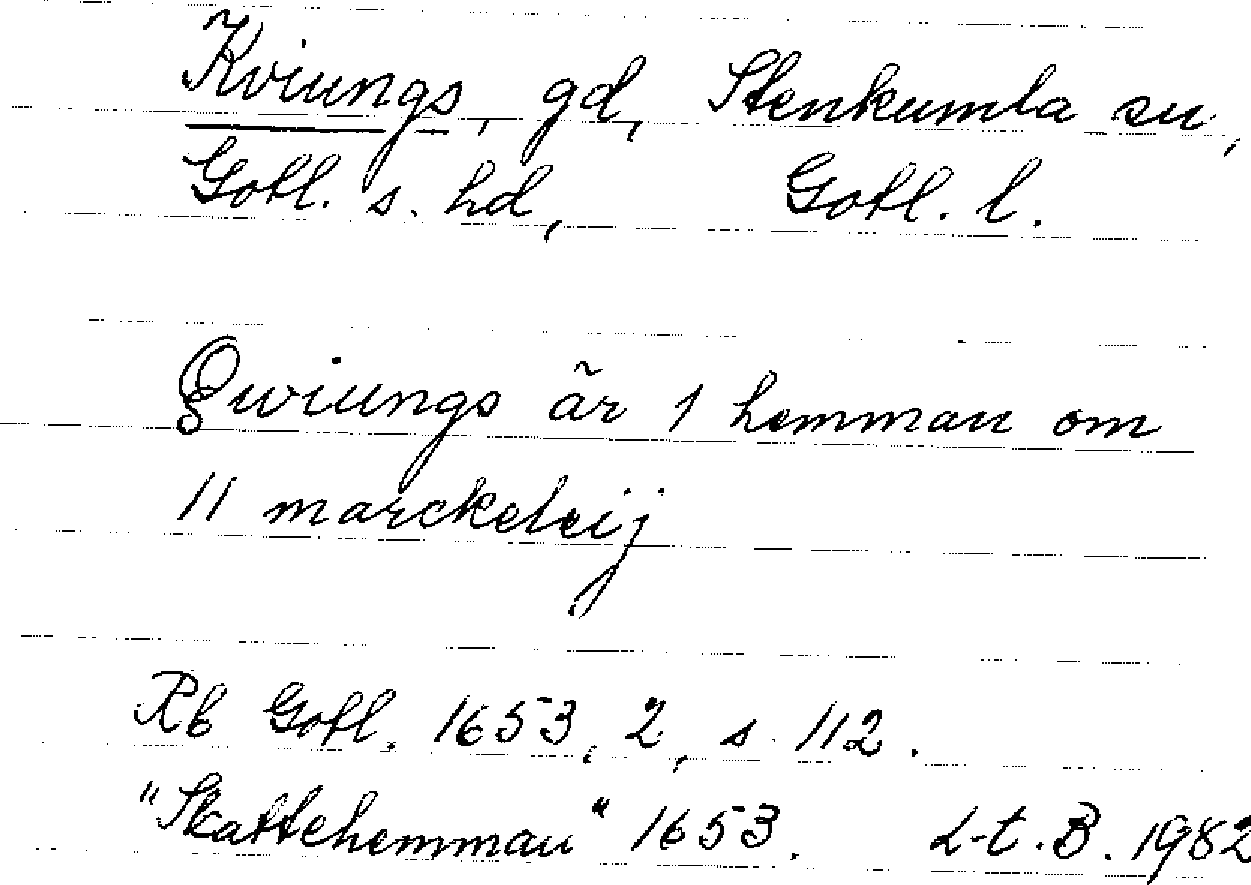 Kviungs, gd, Stenkumla sn,
Gotl. s. hd, Gotl. l.
Qwiungs är 1 hemman om
11 marckeleij
Rb Gotl. 1653, 2, s. 112.
"Skattehemman" 1653. L-t. B. 1982